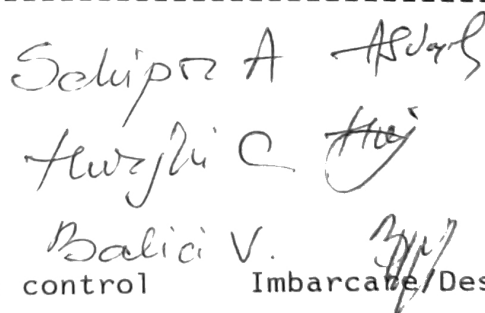 Schipor A
Hurjui C
Balici V.
control Imbarcare/Des